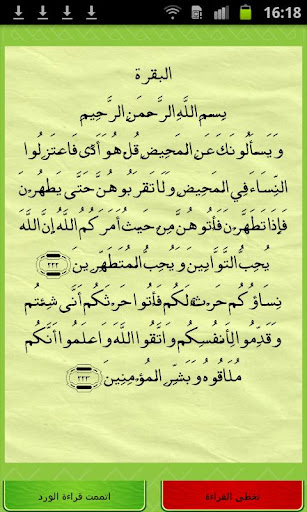 16:18
البقرة
بِسمِ اللَّهِ الرَّحمَنِ الرَّحِيمِ
وَيَسأَلُونَكَ عَنِ المَحِيضِ قُل هُوَ أَذًى فَاعتَزِلُوا
النِّسَاءَ فِي المَحِيضِ وَلَا تَقرَبُوهُنَّ حَتَّى يَطهُرنَ
فَإِذَا تَطَهَّرنَ فَأتُوهُنَّ مِن حَيثُ أَمَرَكُمُ اللَّهُ إِنَّ اللَّهَ
يُحِبُّ التَّوَّابِينَ وَيُحِبُّ المُتَطَهِّرِينَ ٢٢٢
نِسَاؤُكُم حَرثٌ لَكُم فَأتُوا حَرثَكُم أَنَّى شِئتُم
وَقَدِّمُوا لِأَنفُسِكُم وَاتَّقُوا اللَّهَ وَاعلَمُوا أَنَّكُم
مُلَاقُوهُ وَبَشِّرِ المُؤمِنِينَ ٢٢٣
تخطى القراءة
اتممت قراءة الورد